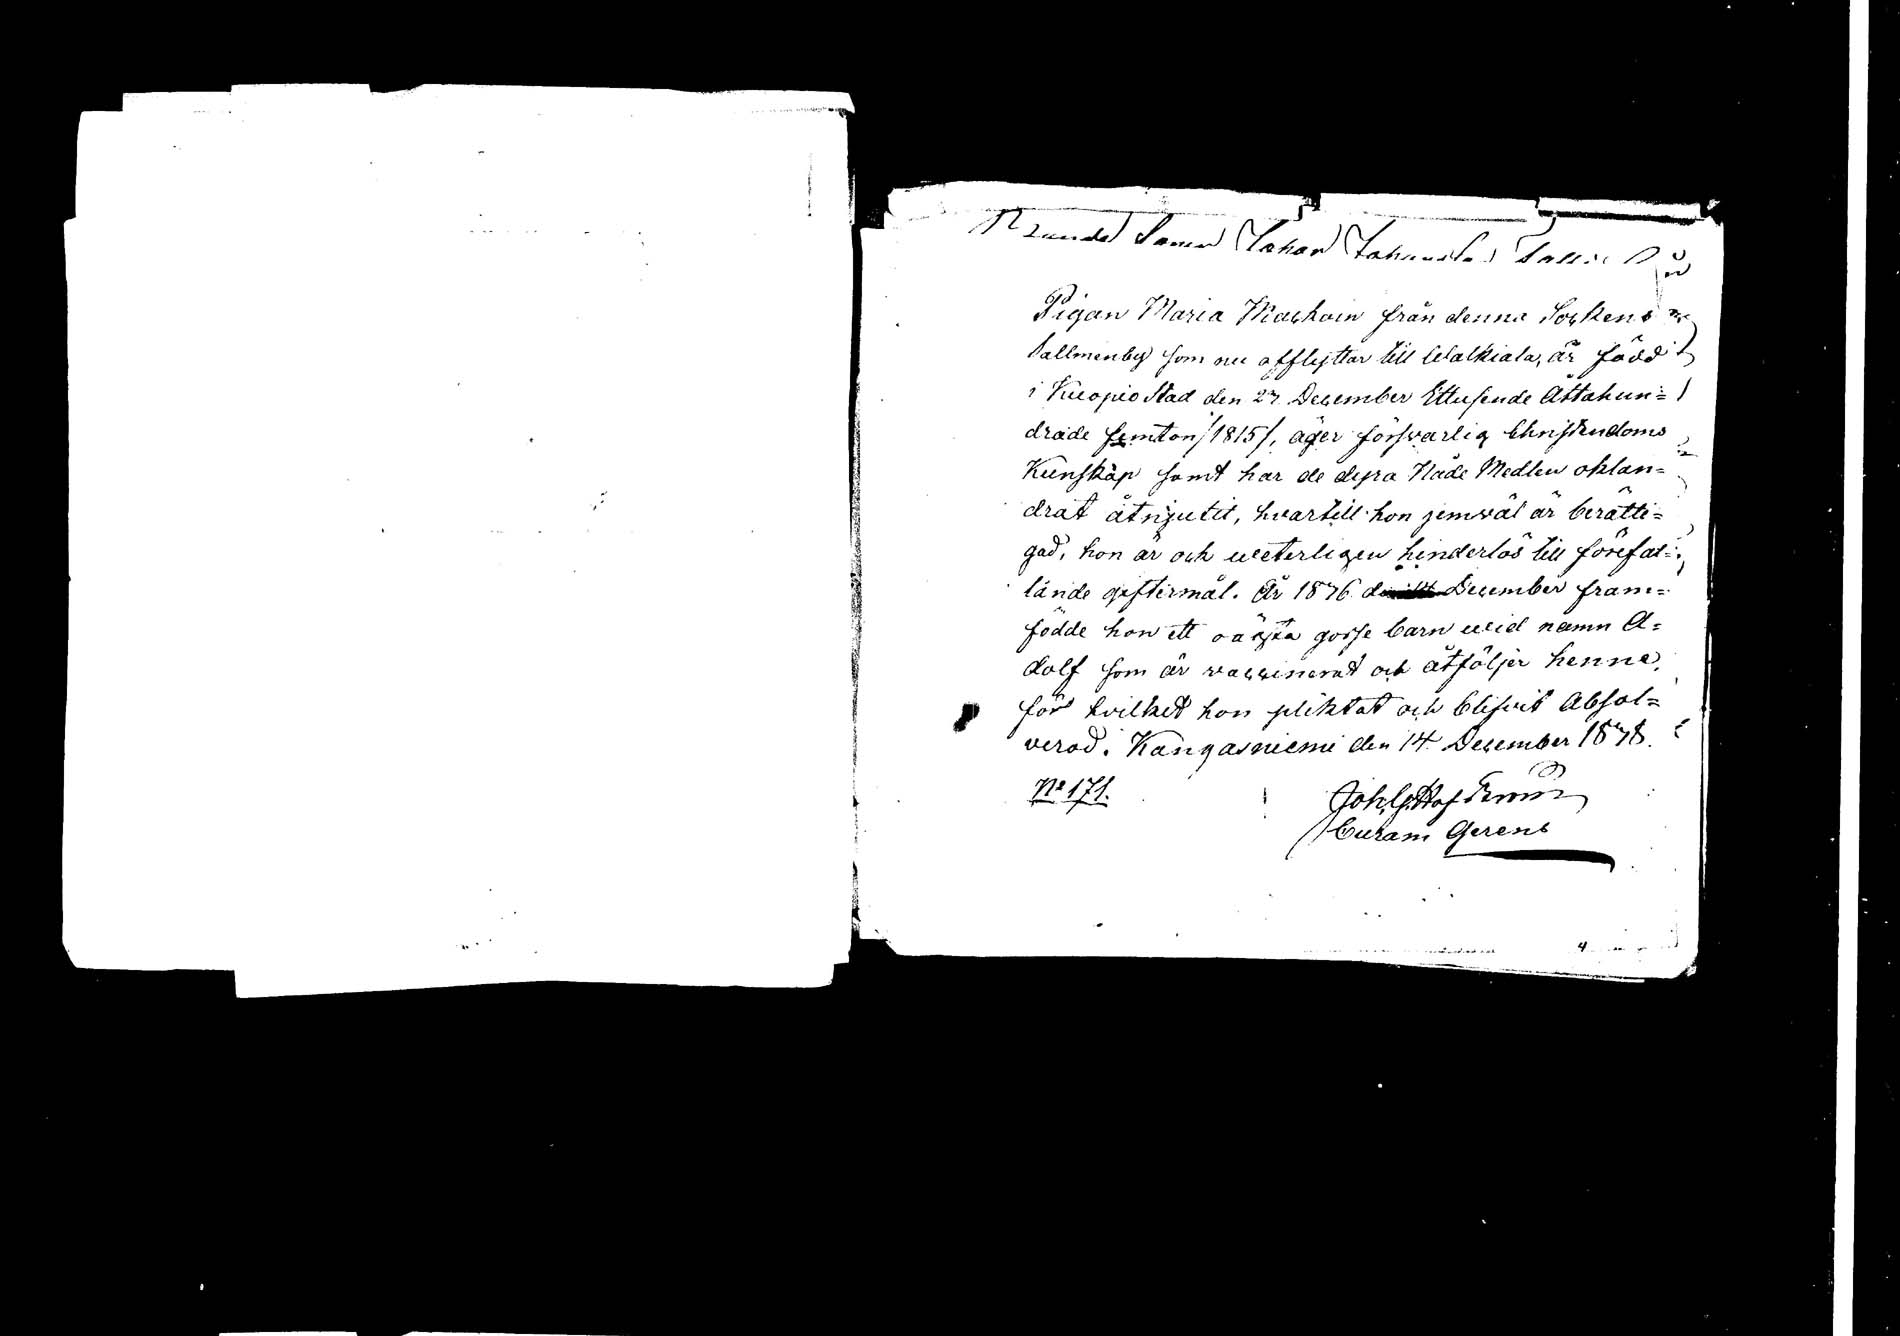 Johan
Pigan Maria Machoin från denna Sockens
Sallmenby som nu afflyttar till Walkiala, är född
i Kuopio Stad den 27 December Ettusende Åttahun=
drade femton /1815/, äger försvarlig Christendoms
Kunskap samt har de dyra Nåde Medlen oklan=
drat åtnjutit, hvartill hon jemväl är berätti=
gad, hon är och veterligen hinderlös till förefal=
lande giftermål. År 1876 December fram=
födde hon ett oäckta gosse barn wid namn A=
dolf som är vaccinerat och åtföljer henne,
för hvilket hon pliktat och blifvit Absol=
verad. Kangasniemi den 14 December 1878.
No 171.
Curam Gerens
4